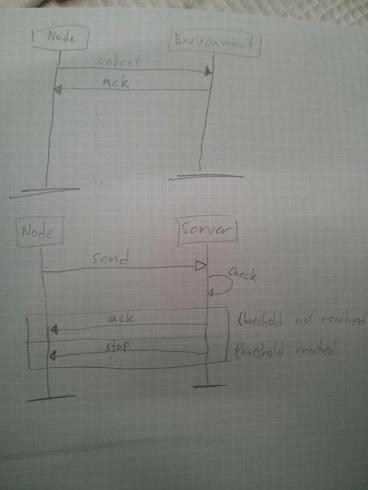 Node
Environment
colect
ack
Node
Server
send
Check
ack
threshold not reached
stop
threshold reached